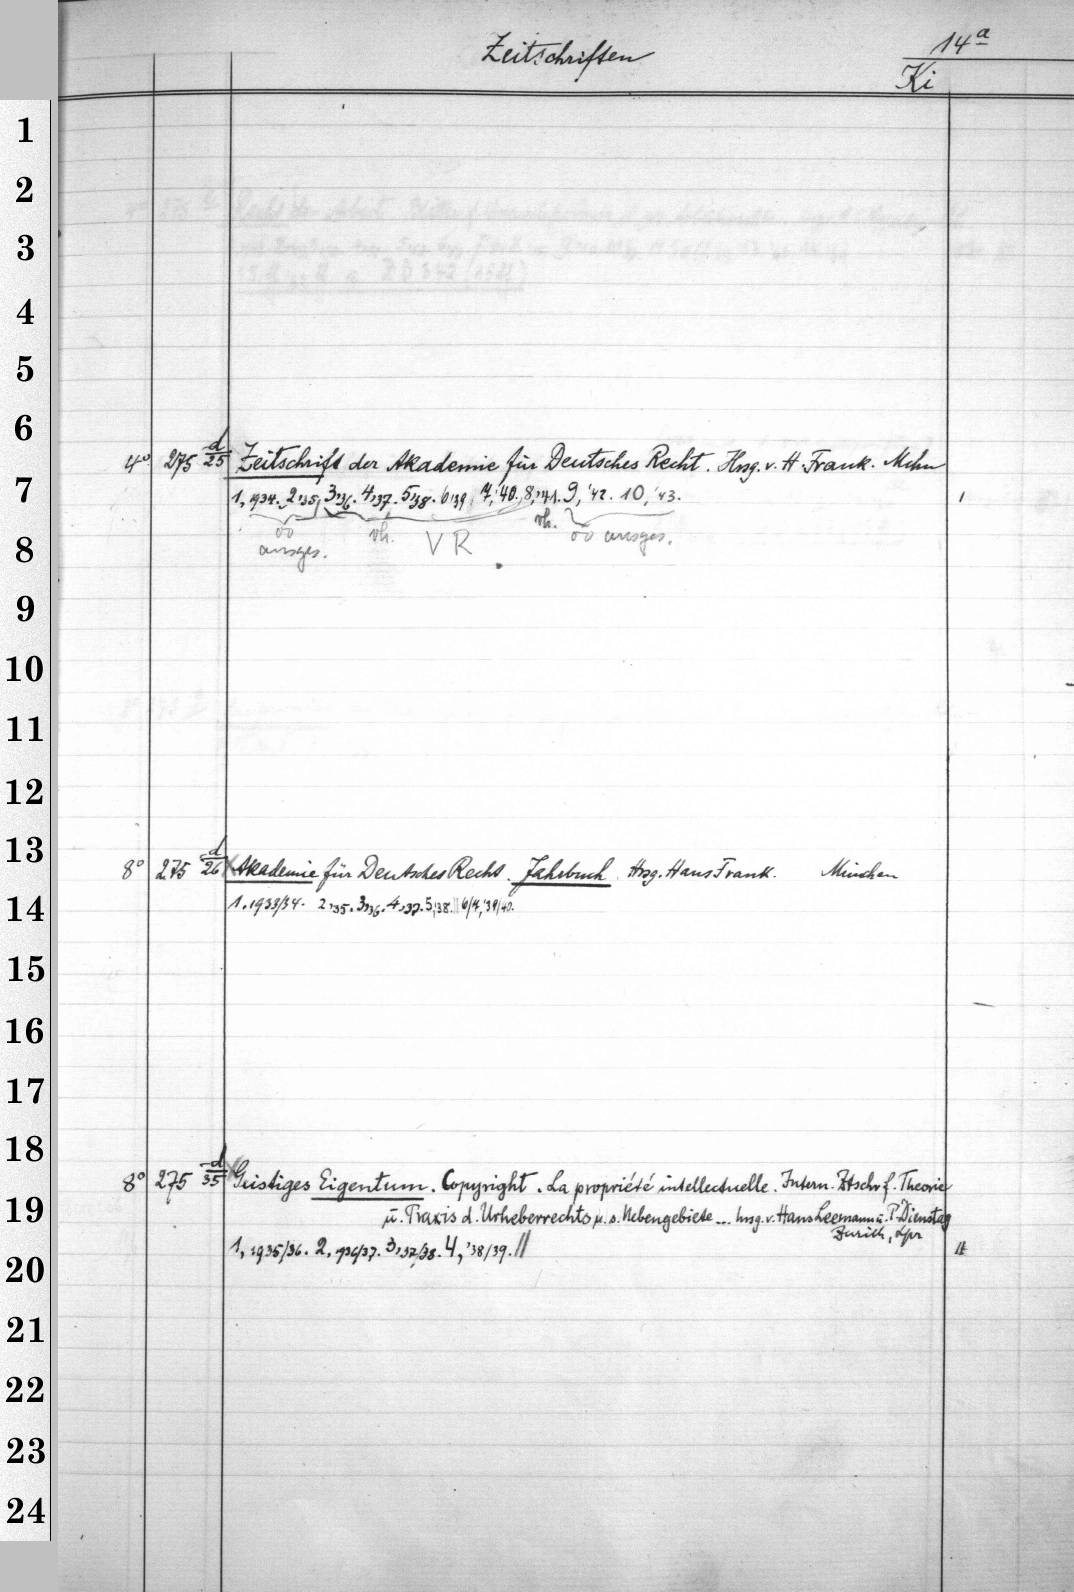 Zeitschriften
14ª
Ki
1
2
3
4
5
6
4° 275 d/25 Zeitschrift der Akademie für Deutsches Recht. Hrsg. v. H. Frank. Mchn
7
1, 1934. 2,'35. 3,'36. 4,'37. 5,'38. 6,'39. 7,'40. 8,'41. 9,'42. 10,'43.
ausges. vh. VR vh. ausges.
8
9
10
11
12
13
8° 275 d/26 Akademie für Deutsches Recht. Jahrbuch. Hrsg. Hans Frank. München
14
1. 1933/34. 2,'35. 3,'36. 4,'37. 5,'38. 6/7,'39/40.
15
16
17
18
8° 275 d/35 Geistiges Eigentum. Copyright. La propriété intellectuelle. Intern. Ztschr f. Theorie
19
u. Praxis d. Urheberrechts u. s. Nebengebiete... hrsg. v. Hans Leemann u. P. Dienstag
Zürich, Lpz
1, 1935/36. 2, 1936/37. 3,'37/38. 4,'38/39. //
20
21
22
23
24